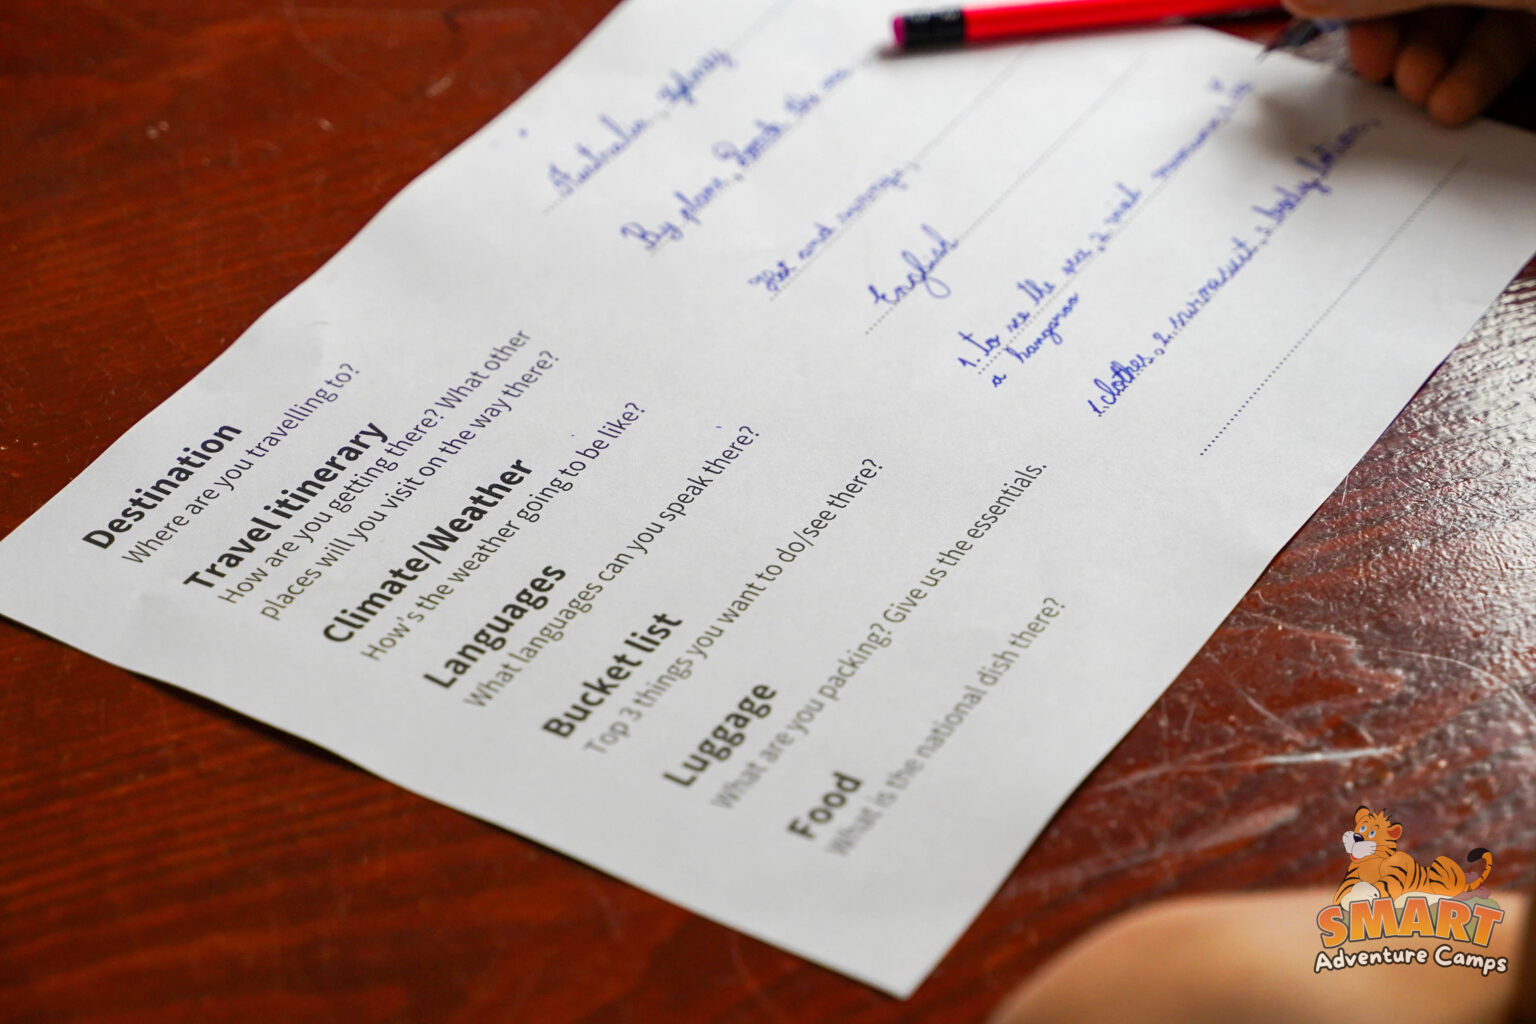 Destination
Where are you travelling to?
Australia, Sydney
Travel itinerary
How are you getting there? What other
places will you visit on the way there?
By plane,
Climate/Weather
How's the weather going to be like?
Hot and sunny.
Languages
What languages can you speak there?
English
Bucket list
Top 3 things you want to do/see there?
1. to see the sea, 2. visit
a kangaroo
Luggage
What are you packing? Give us the essentials.
1. clothes, 2. swimsuit, 3. body lotion,
Food
What is the national dish there?
SMART
Adventure Camps